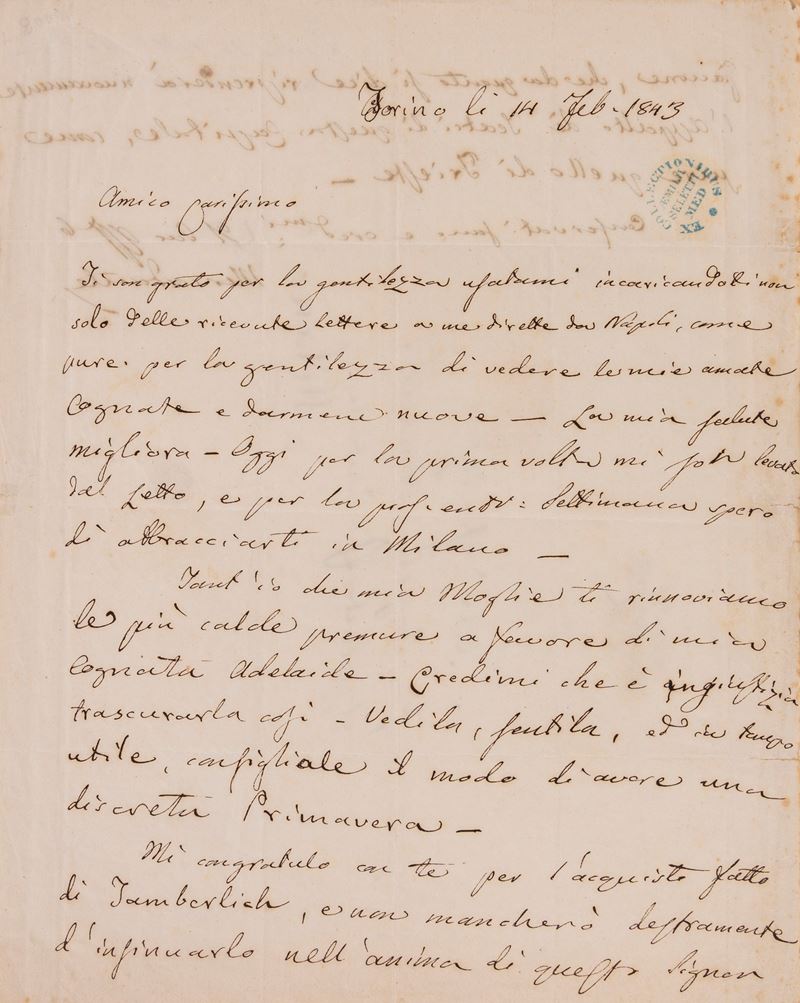 Torino li 14 Feb. 1843
COLLECTIONIBUS
EMILII
SELETTI
MED
EX
Amico carissimo
Ti son grato per la gentilezza usatami incaricandoti non
solo delle ricevute lettere a me dirette da Napoli, come
pure per la gentilezza di vedere le mie amate
Cognate e darmene nuove — La mia salute
migliora — Oggi per la prima volta mi son levato
dal Letto, e per la pross. entr: Settimana spero
di abbracciarti in Milano —
Tant'io che mia Moglie ti rinnoviamo
le più calde premure a favore di mia
Cognata Adelaide — Credimi che è ingiustizia
trascurarla così — Vedila, sentila, ed in tempo
utile, consigliale il modo di avere una
discreta Primavera —
Mi congratulo con te per l'acquisto fatto
di Tamberlich, e non mancherò destramente
d'insinuarlo nell'anima di questo Signor